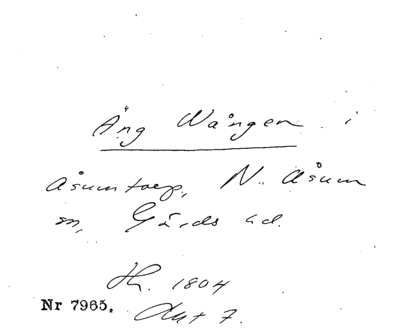 Äng Wången i
Åsumtorp, N. Åsum
sn, Gärds hd.
1804
Nr 7965. Akt 7.